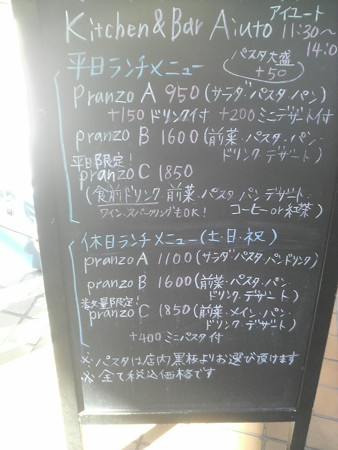 Kitchen&Bar Aiuto アイユート 11:30〜
14:0
平日ランチメニュー パスタ大盛
+50
pranzo A 950(サラダ・パスタ パン)
+150ドリンク付 +200ミニデザート付
pranzo B 1600(前菜・パスタ・パン・
ドリンク・デザート)
平日限定!
pranzo C 1850
(食前ドリンク 前菜・パスタ・パン デザート・
ワイン、スパークリングもOK! コーヒー or 紅茶)
休日ランチメニュー(土・日・祝)
pranzo A 1100(サラダ・パスタ・パン・ドリンク)
pranzo B 1600(前菜・パスタ・パン・
ドリンク・デザート)
数量限定!
pranzo C 1850(前菜・メイン・パン・
ドリンク デザート)
+400 ミニパスタ付
※パスタは店内黒板よりお選び頂けます
※全て税込価格です